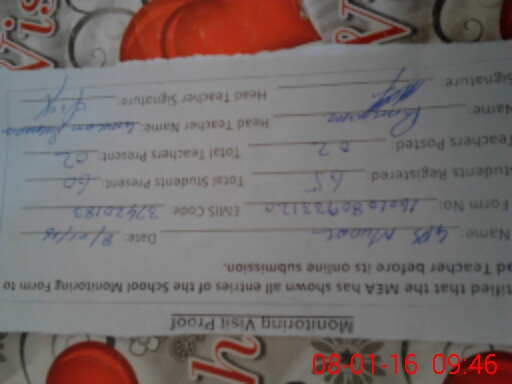 Monitoring Visit Proof
tified that the MEA has shown all entries of the School Monitoring Form to
ad Teacher before its online submission.
Name: GPS Date: 8/01/16
Form No: EMIS Code: 37420183
Students Registered: 65 Total Students Present: 60
Teachers Posted: 02 Total Teachers Present: 02
Name: Head Teacher Name:
Signature: Head Teacher Signature:
08-01-16 09:46